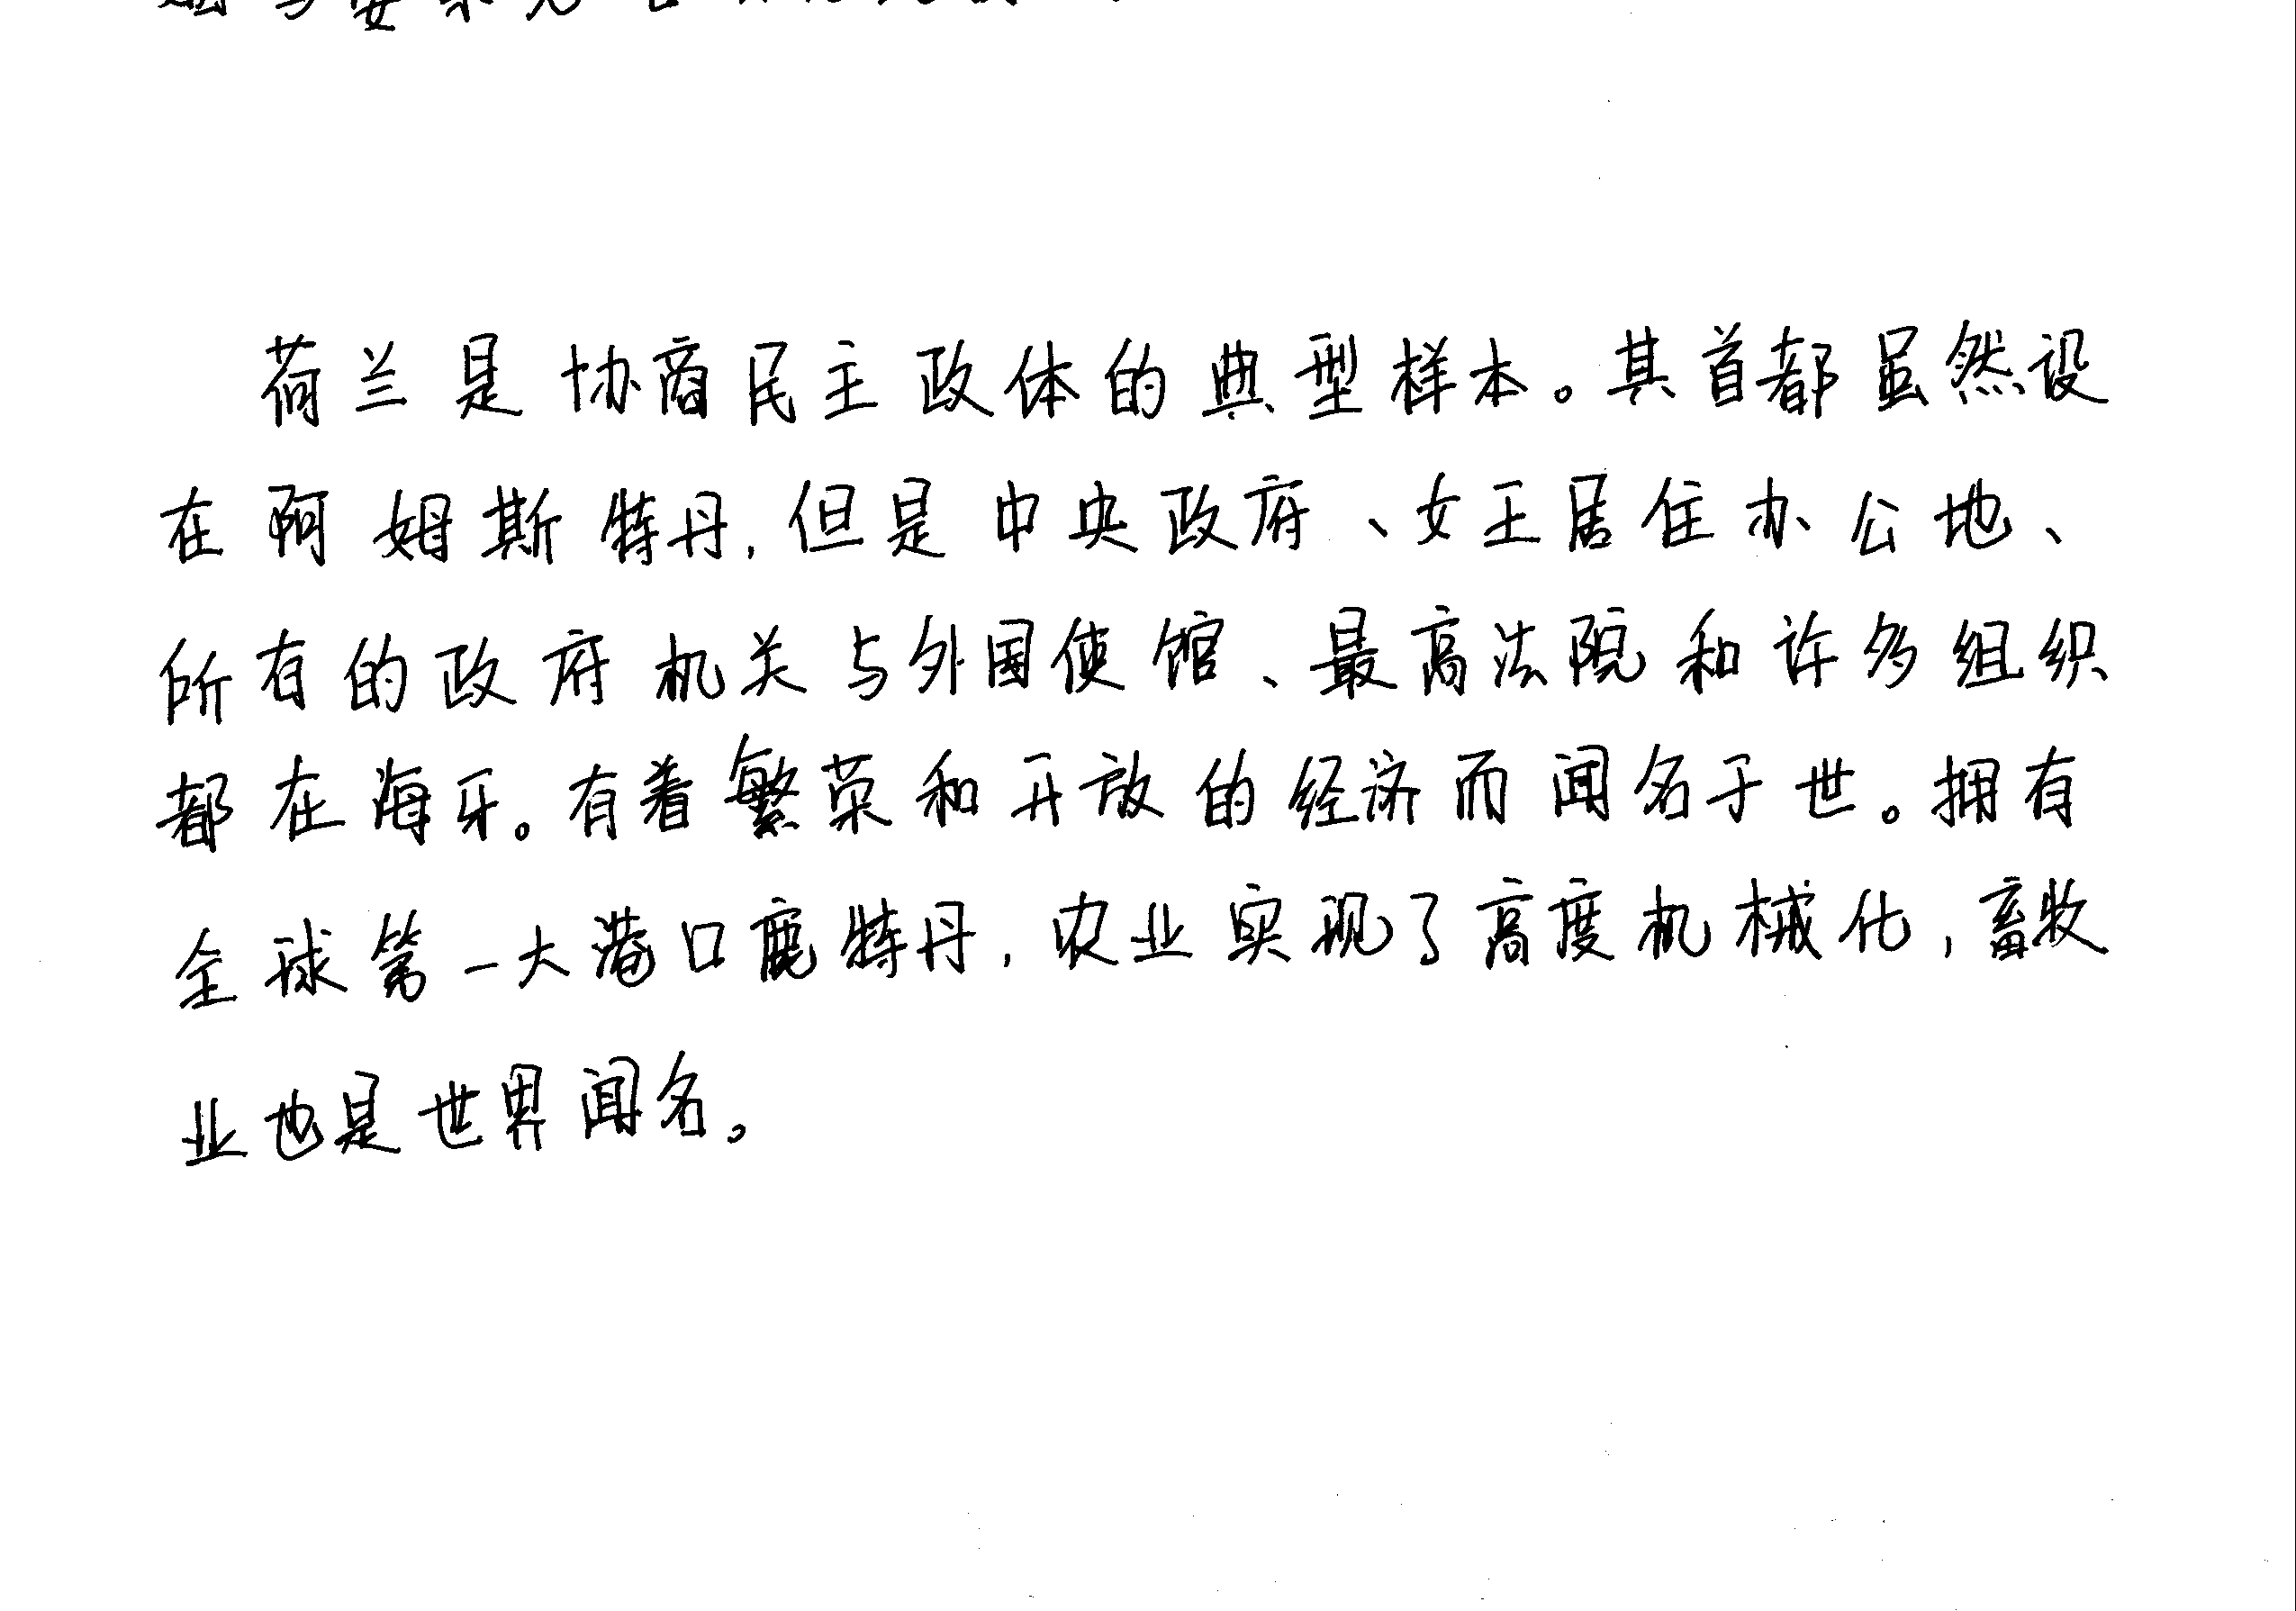 荷兰是协商民主政体的典型样本。其首都虽然设
在阿姆斯特丹,但是中央政府、女王居住办公地、
所有的政府机关与外国使馆、最高法院和许多组织
都在海牙。有着繁荣和开放的经济而闻名于世。拥有
全球第一大港口鹿特丹,农业实现了高度机械化,畜牧
业也是世界闻名。